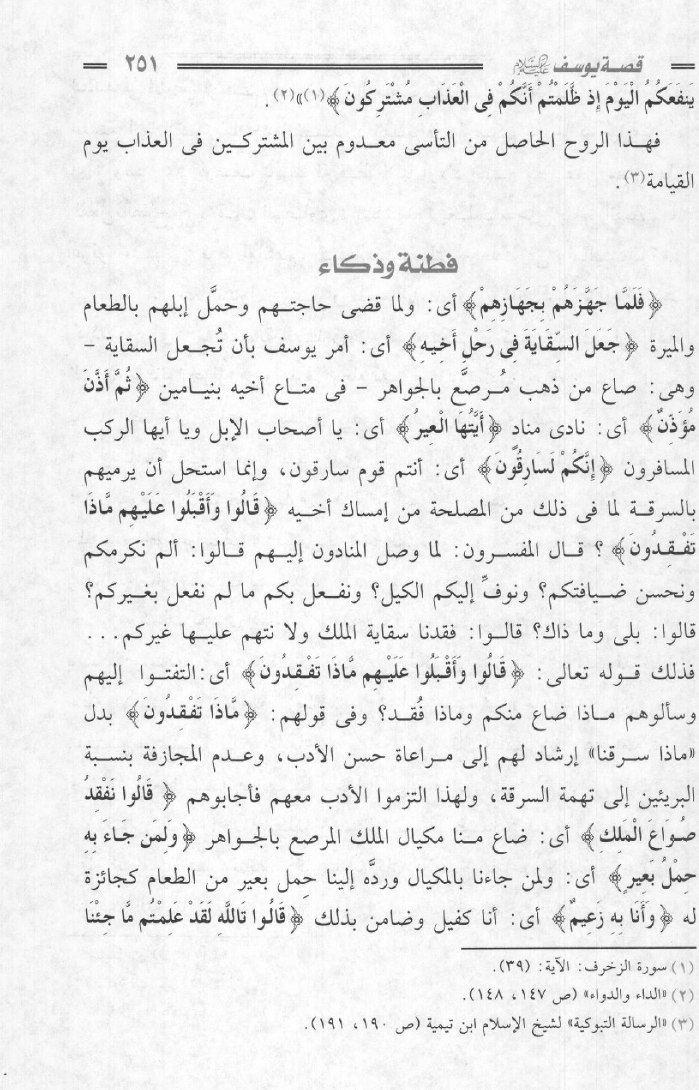 قصة يوسف عليه السلام ٢٥١
يَنفَعَكُمُ الْيَوْمَ إِذ ظَّلَمْتُمْ أَنَّكُمْ فِى الْعَذَابِ مُشْتَرِكُونَ﴾(١)»(٢).
فهذا الروح الحاصل من التأسى معدوم بين المشتركين فى العذاب يوم
القيامة(٣).
فطنة وذكاء
﴿فَلَمَّا جَهَّزَهُمْ بِجَهَازِهِمْ﴾ أى: ولما قضى حاجتهم وحمَّل إبلهم بالطعام
والميرة ﴿جَعَلَ السِّقَايَةَ فِى رَحْلِ أَخِيهِ﴾ أى: أمر يوسف بأن تُجعل السقاية –
وهى: صاع من ذهب مُرصَّع بالجواهر – فى متاع أخيه بنيامين ﴿ثُمَّ أَذَّنَ
مُؤَذِّنٌ﴾ أى: نادى مناد ﴿أَيَّتُهَا الْعِيرُ﴾ أى: يا أصحاب الإبل ويا أيها الركب
المسافرون ﴿إِنَّكُمْ لَسَارِقُونَ﴾ أى: أنتم قوم سارقون، وإنما استحل أن يرميهم
بالسرقة لما فى ذلك من المصلحة من إمساك أخيه ﴿قَالُوا وَأَقْبَلُوا عَلَيْهِم مَّاذَا
تَفْقِدُونَ﴾ ؟ قال المفسرون: لما وصل المنادون إليهم قالوا: ألم نكرمكم
ونحسن ضيافتكم؟ ونوفِّ إليكم الكيل؟ ونفعل بكم ما لم نفعل بغيركم؟
قالوا: بلى وما ذاك؟ قالوا: فقدنا سقاية الملك ولا نتهم عليها غيركم...
فذلك قوله تعالى: ﴿قَالُوا وَأَقْبَلُوا عَلَيْهِم مَّاذَا تَفْقِدُونَ﴾ أى:التفتوا إليهم
وسألوهم ماذا ضاع منكم وماذا فُقد؟ وفى قولهم: ﴿مَّاذَا تَفْقِدُونَ﴾ بدل
«ماذا سرقنا» إرشاد لهم إلى مراعاة حسن الأدب، وعدم المجازفة بنسبة
البريئين إلى تهمة السرقة، ولهذا التزموا الأدب معهم فأجابوهم ﴿قَالُوا نَفْقِدُ
صُوَاعَ الْمَلِكِ﴾ أى: ضاع منا مكيال الملك المرصع بالجواهر ﴿وَلِمَن جَاءَ بِهِ
حِمْلُ بَعِيرٍ﴾ أى: ولمن جاءنا بالمكيال وردَّه إلينا حِمل بعير من الطعام كجائزة
له ﴿وَأَنَا بِهِ زَعِيمٌ﴾ أى: أنا كفيل وضامن بذلك ﴿قَالُوا تَاللَّهِ لَقَدْ عَلِمْتُم مَّا جِئْنَا
(١) سورة الزخرف: الآية: (٣٩).
(٢) «الداء والدواء» (ص ١٤٧، ١٤٨).
(٣) «الرسالة التبوكية» لشيخ الإسلام ابن تيمية (ص ١٩٠، ١٩١).